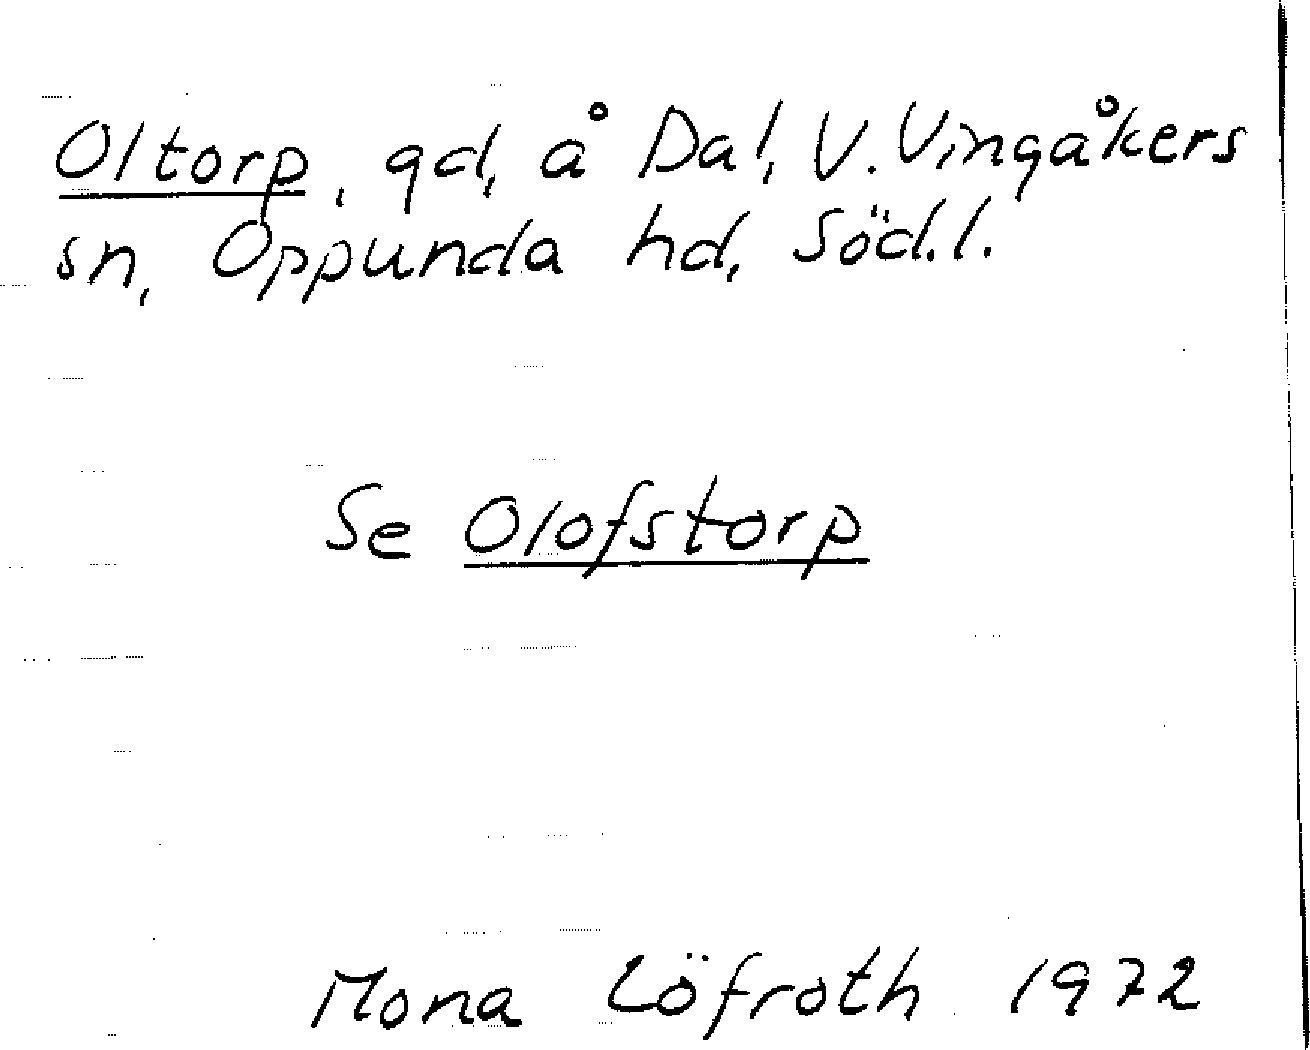 Oltorp, gd, å Dal, V. Vingåkers
sn, Oppunda hd, Söd.l.
Se Olofstorp
Mona Löfroth 1972